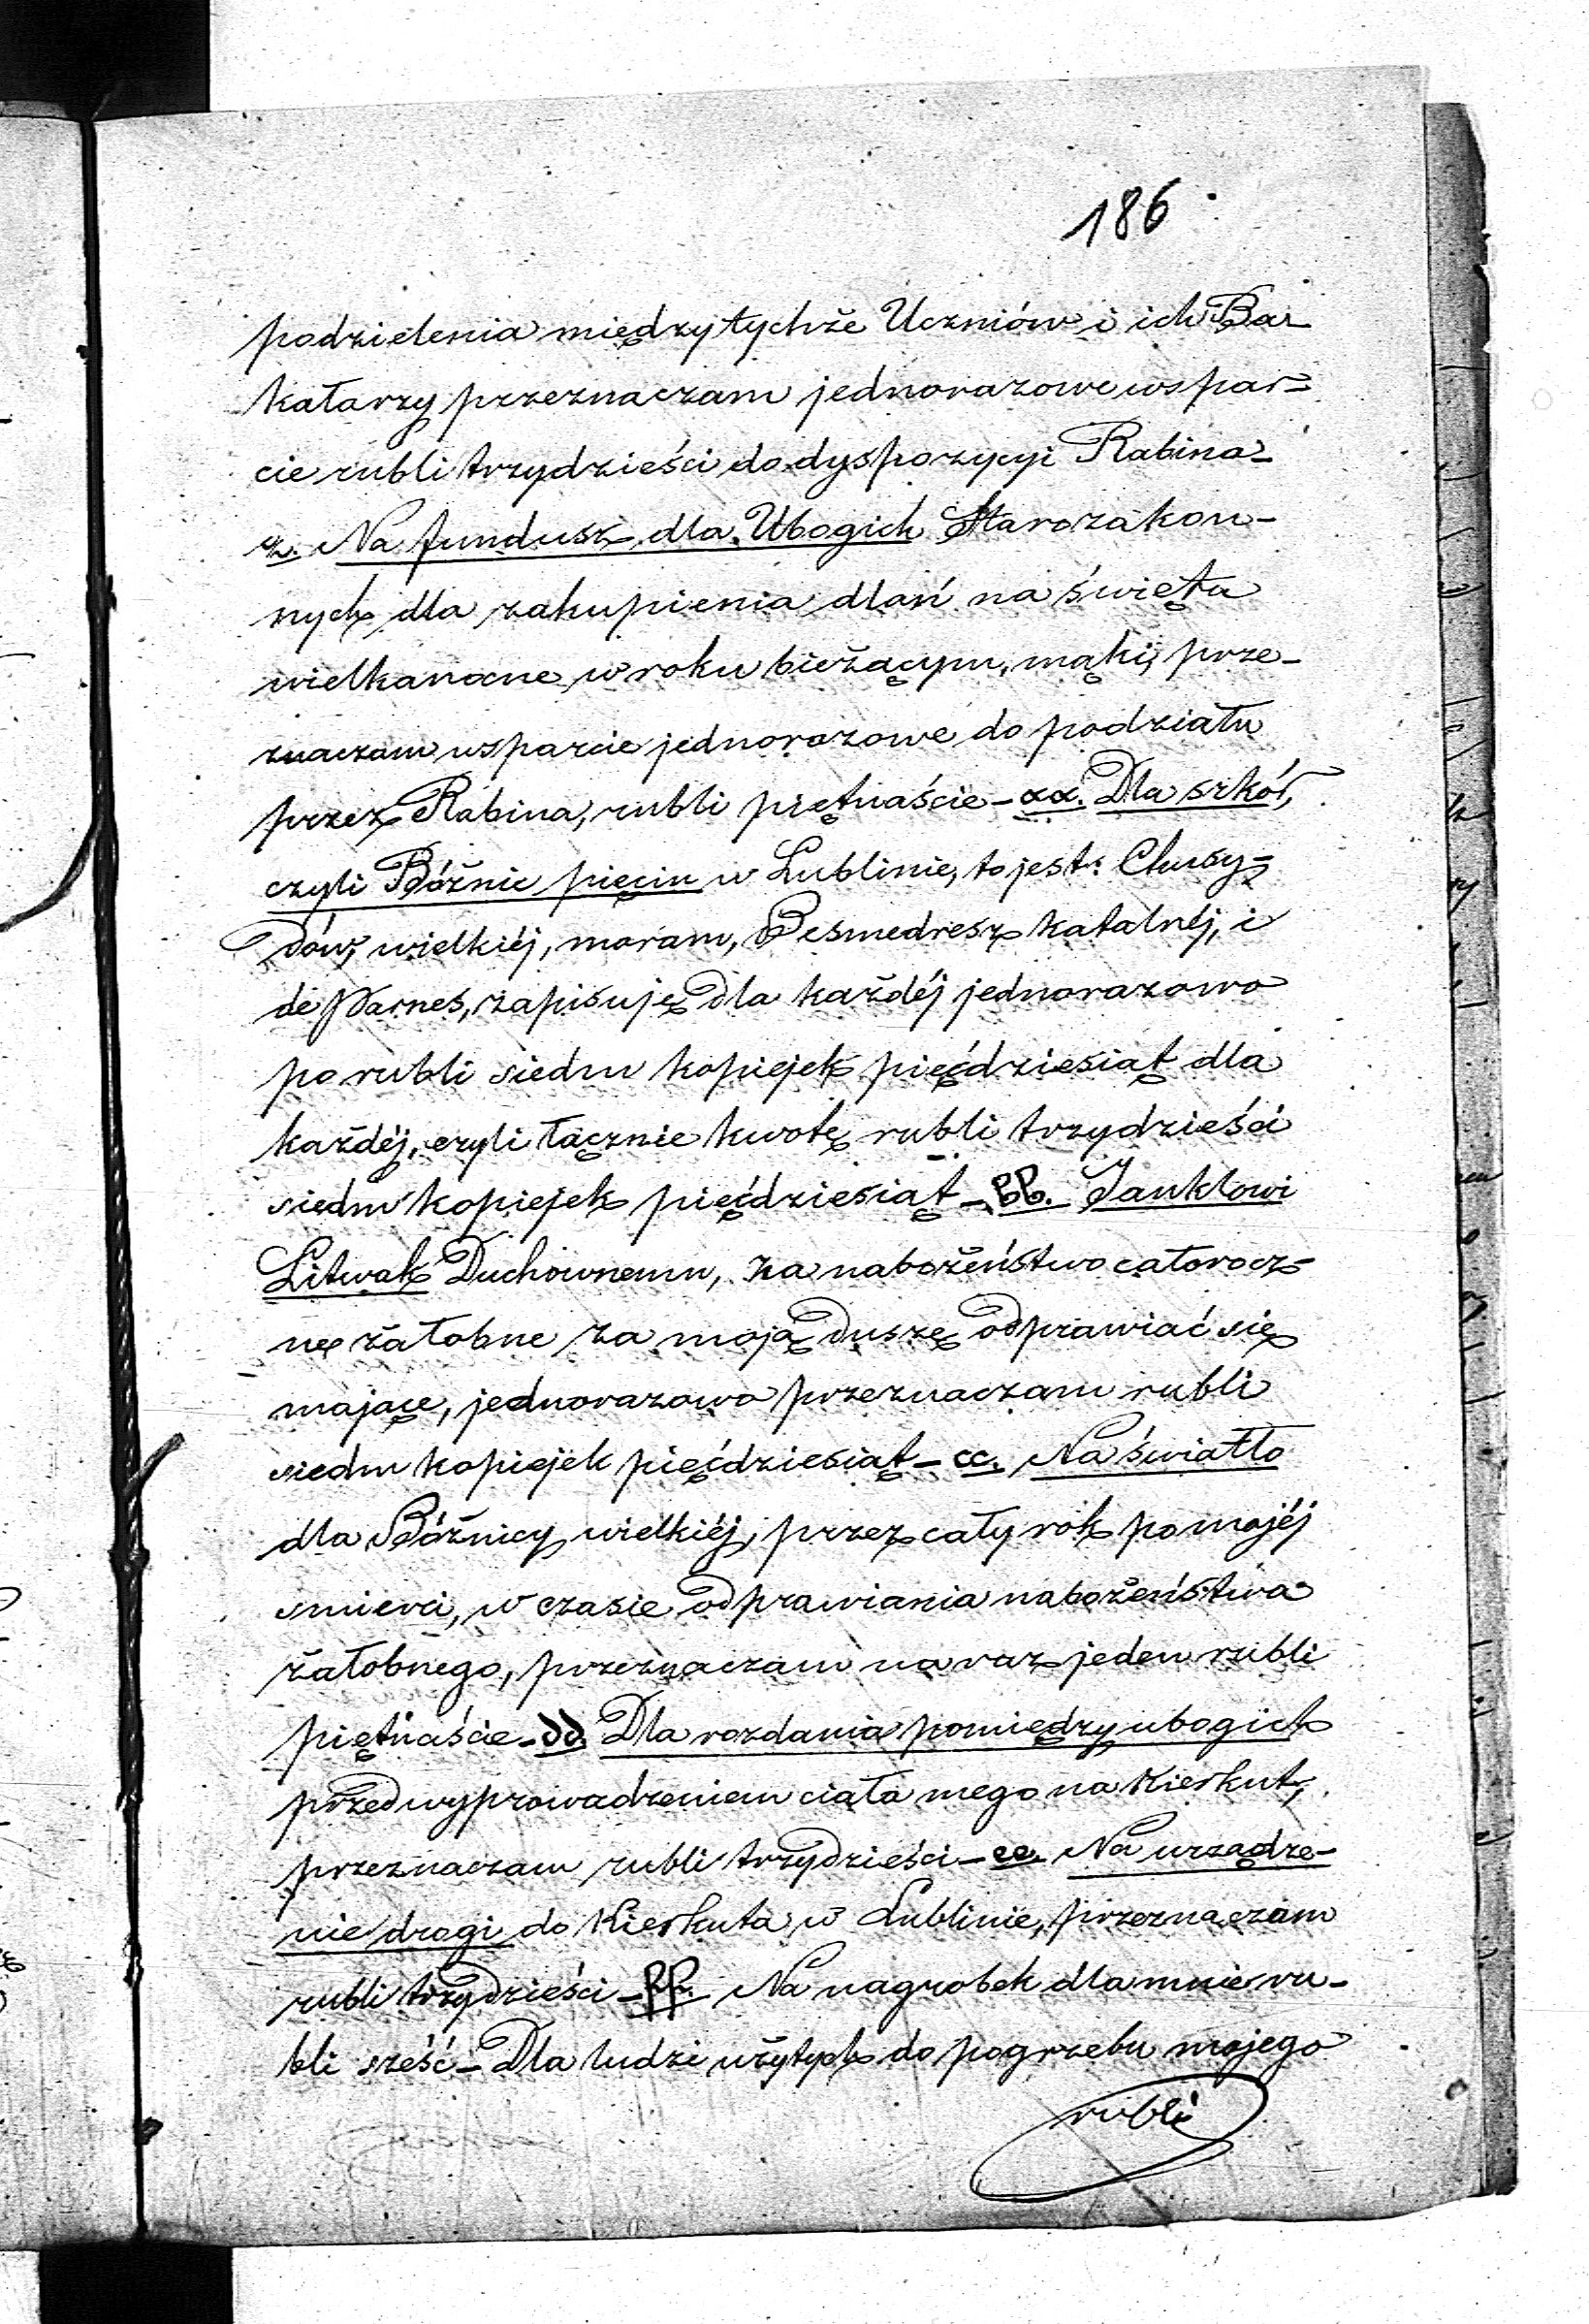 186
podzielenia między tychże Uczniów i ich Ba-
kałarzy przeznaczam jednorazowe wspar-
cie rubli trzydzieści do dyspozycyi Rabina-
z. Na fundusz dla Ubogich Starozakon-
nych dla zakupienia dlań na święta
wielkanocne w roku bieżącym, mąki, prze-
znaczam wsparcie jednorazowe do podziału
przez Rabina, rubli piętnaście - aa. Dla szkół,
czyli Bóżnic pięciu w Lublinie, to jest: Chusy-
dów, wielkiéj, maram, Besmedresz katalnéj, i
de Parnes, zapisuję dla każdéj jednorazowo
po rubli siedm kopiejek pięćdziesiąt dla
każdéj, czyli łącznie kwotę rubli trzydzieści
siedm kopiejek pięćdziesiąt - bb. Janklowi
Litwak Duchownemu, za nabożeństwo całorocz-
ne żałobne za moją duszę odprawiać się
mające, jednorazowo przeznaczam rubli
siedm kopiejek pięćdziesiąt - cc. Na światło
dla Bóżnicy wielkiéj, przez cały rok po mojéj
śmierci, w czasie odprawiania nabożeństwa
żałobnego, przeznaczam na raz jeden rubli
piętnaście - dd. Dla rozdania pomiędzy ubogich
przed wyprowadzeniem ciała mego na Kierkut,
przeznaczam rubli trzydzieści - ee. Na urządze-
nie drogi do Kierkuta w Lublinie, przeznaczam
rubli trzydzieści - ff. Na nagrobek dla mnie ru-
bli sześć - Dla ludzi użytych do pogrzebu mojego
rubli